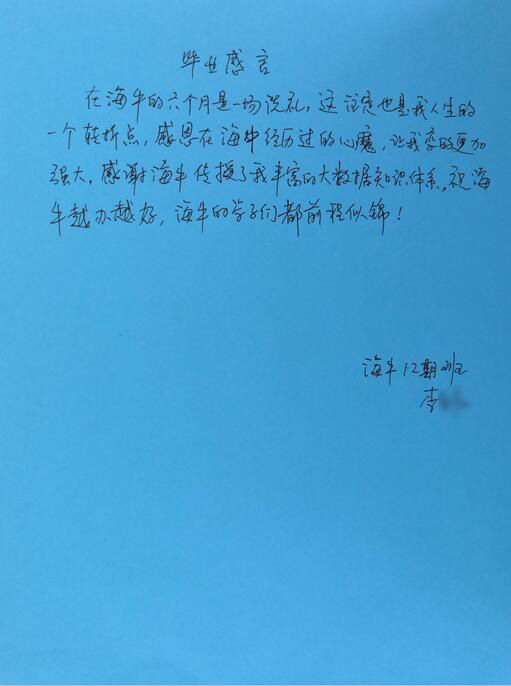 毕业感言
在海牛的六个月是一场洗礼，这注定也是我人生的
一个转折点，感恩在海牛经历过的心魔，让我变的更加
强大，感谢海牛传授了我丰富的大数据知识体系，祝海
牛越办越好，海牛的学子们都前程似锦！
海牛12期班
李